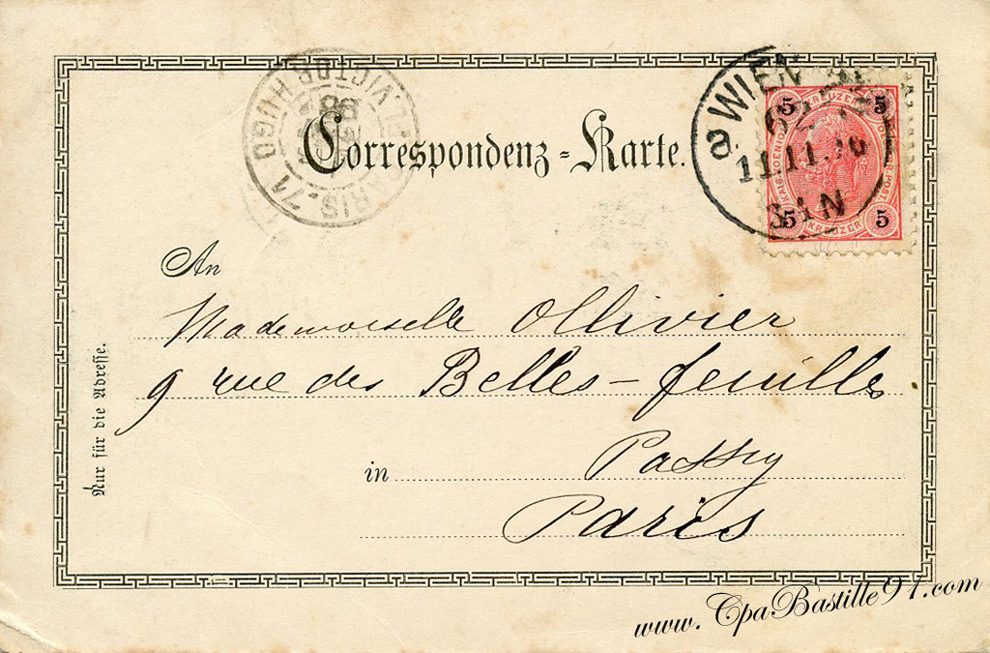 Correspondenz-Karte.
PARIS-71 VICTOR HUGO
98
WIEN
11.11.
5 KREUZER 5
5 KREUZER 5
An
Mademoiselle Ollivier
9 rue des Belles-feuilles
in Passy
Paris
Nur für die Adresse.
www.CpaBastille91.com